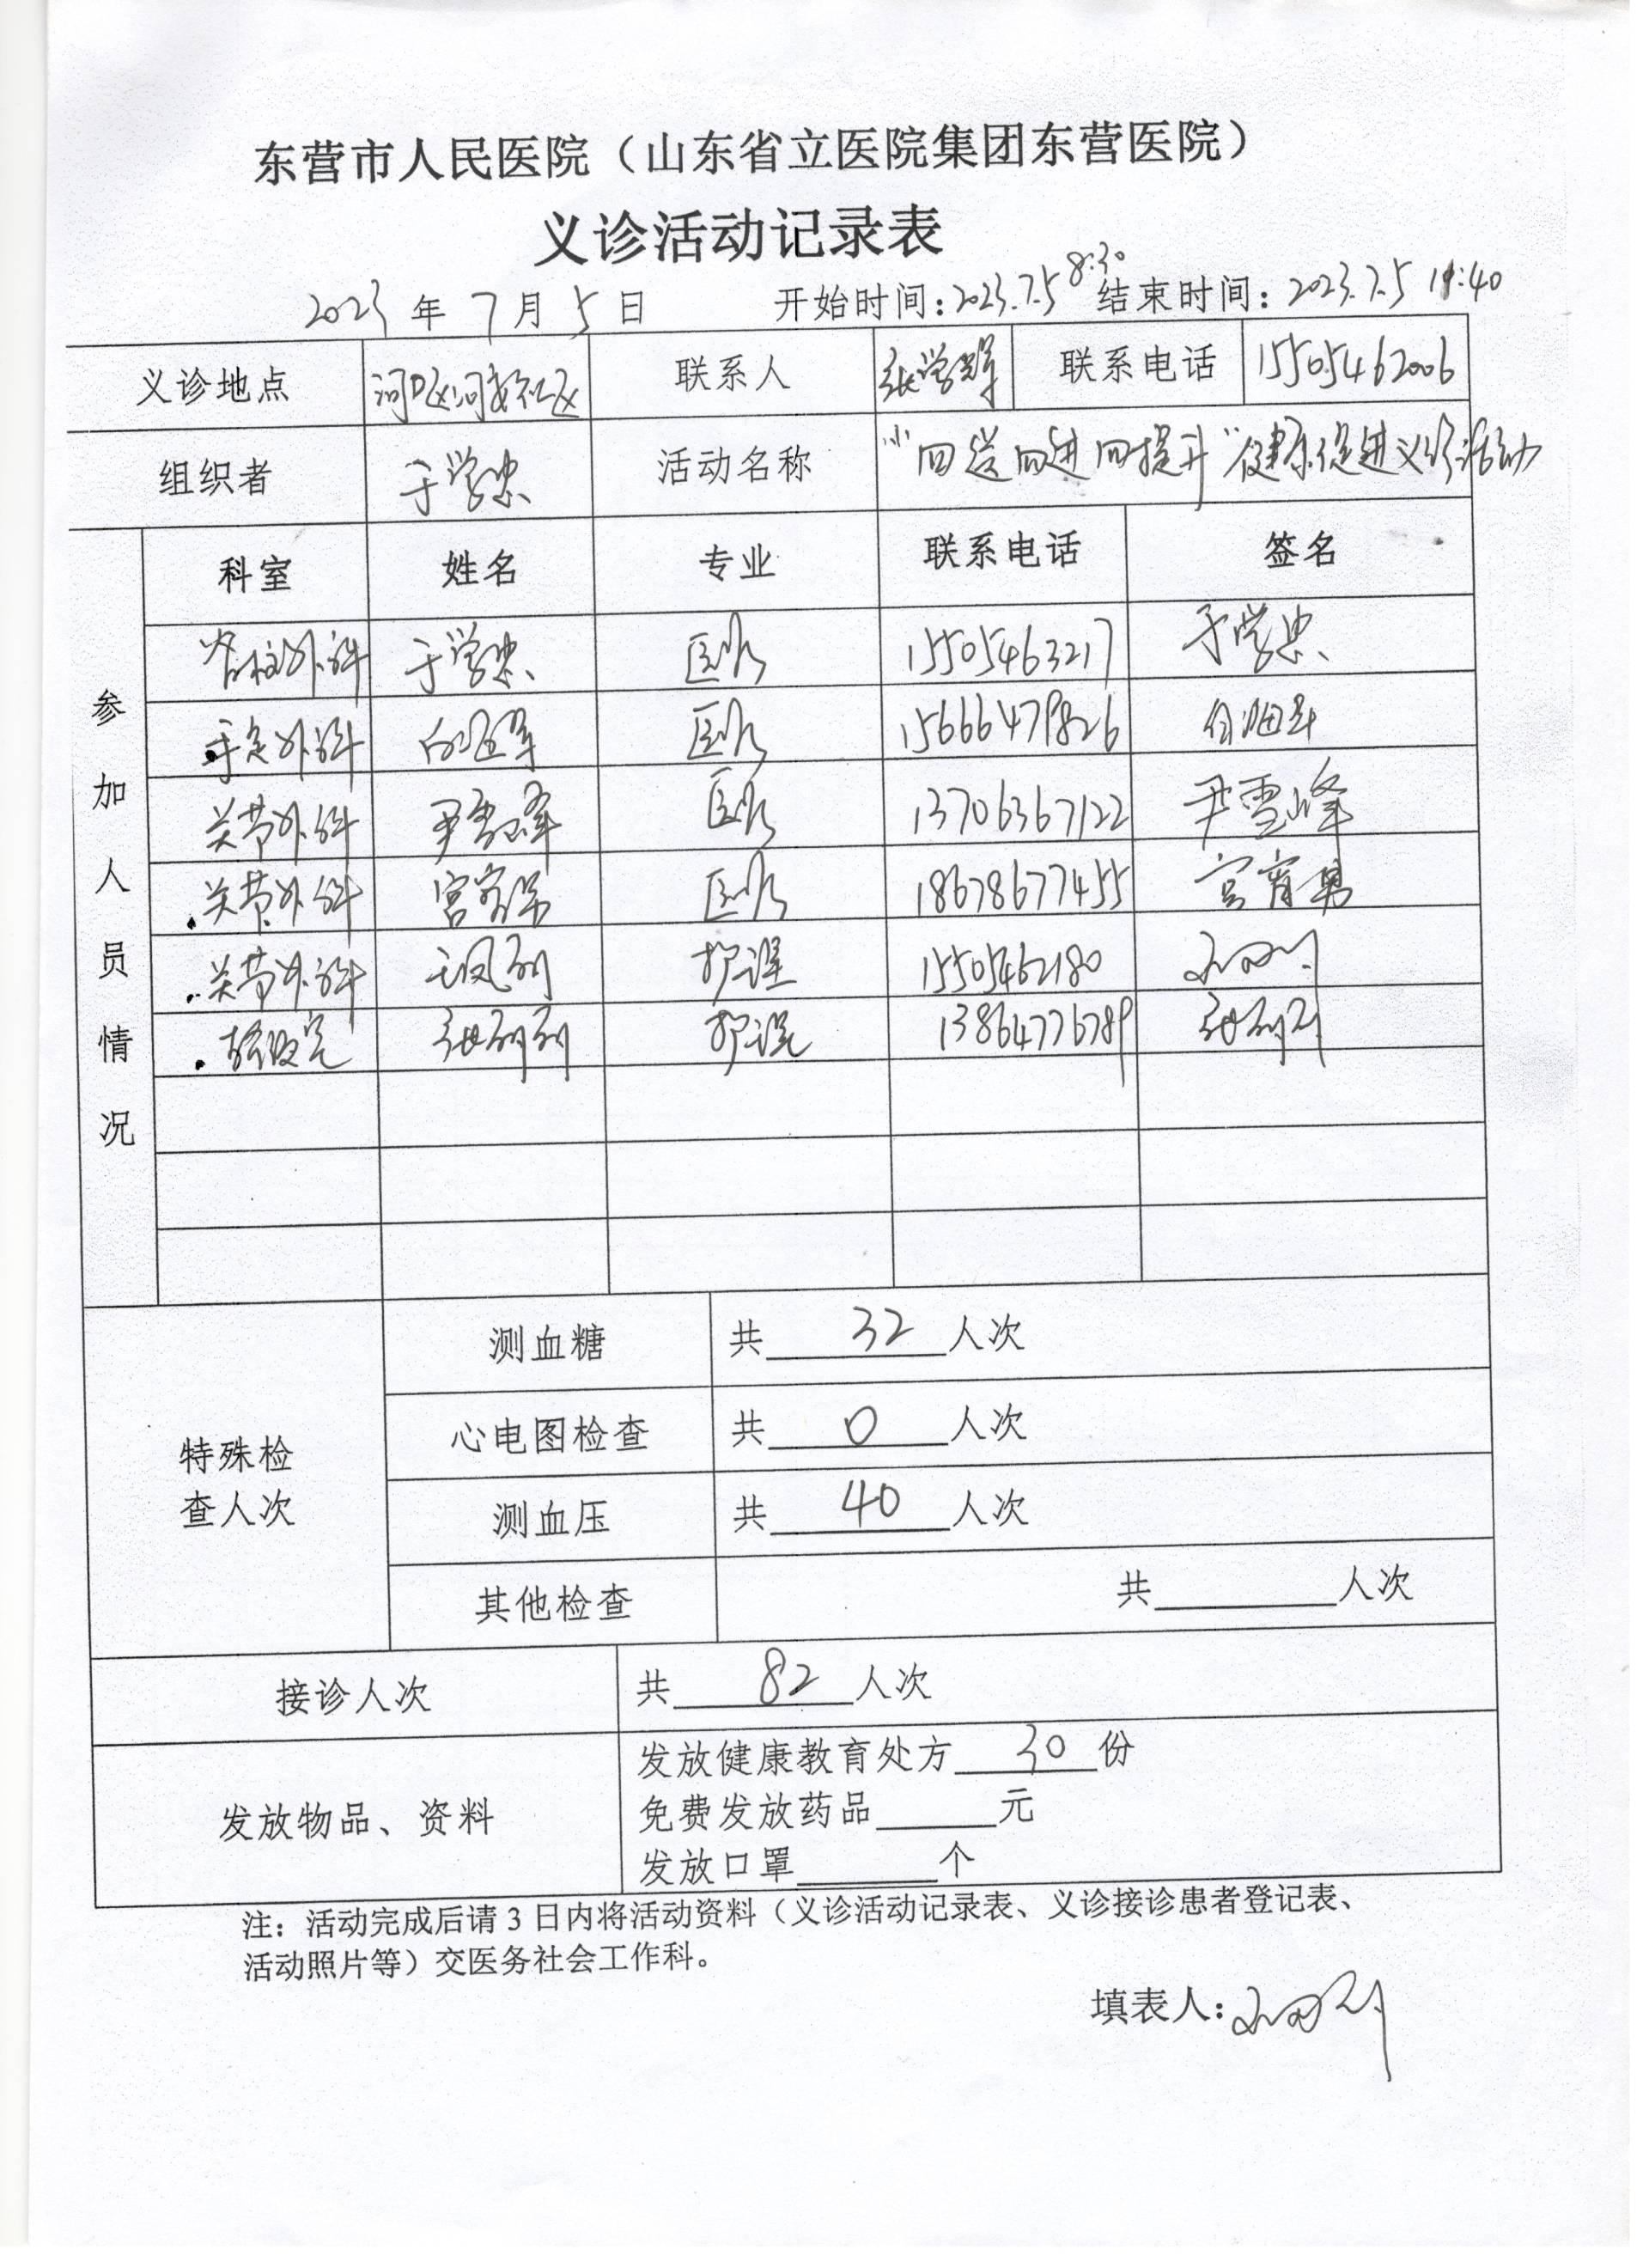 东营市人民医院（山东省立医院集团东营医院）
义诊活动记录表
2023年7月5日 开始时间：2023.7.5 8:30 结束时间：2023.7.5 11:40
义诊地点 河口区河安社区 联系人 张学辉 联系电话 15505462006
组织者 于学忠 活动名称 “四送四进四提升”健康促进义诊活动
参加人员情况
科室 姓名 专业 联系电话 签名
脊柱外科 于学忠 医疗 15505463217 于学忠
手足外科 医疗 15666479826
关节外科 尹雪峰 医疗 13706367122 尹雪峰
关节外科 宫育男 医疗 18678677455 宫育男
关节外科 护理 15505462180
护理 13864776789 张丽丽
特殊检查人次
测血糖 共32人次
心电图检查 共0人次
测血压 共40人次
其他检查 共 人次
接诊人次 共82人次
发放物品、资料
发放健康教育处方30份
免费发放药品 元
发放口罩 个
注：活动完成后请3日内将活动资料（义诊活动记录表、义诊接诊患者登记表、
活动照片等）交医务社会工作科。
填表人：